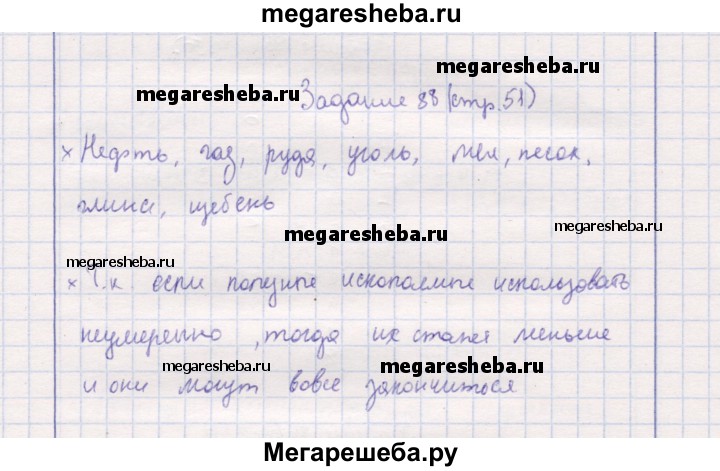 megaresheba.ru
megaresheba.ru
megaresheba.ru Задание 88 (стр. 51)
× Нефть, газ, руда, уголь, мел, песок,
глина, щебень
megaresheba.ru
megaresheba.ru
megaresheba.ru
× Т.к. если полезные ископаемые использовать
неумеренно, тогда их станет меньше
megaresheba.ru megaresheba.ru
и они могут вовсе закончиться
Мегарешеба.ру